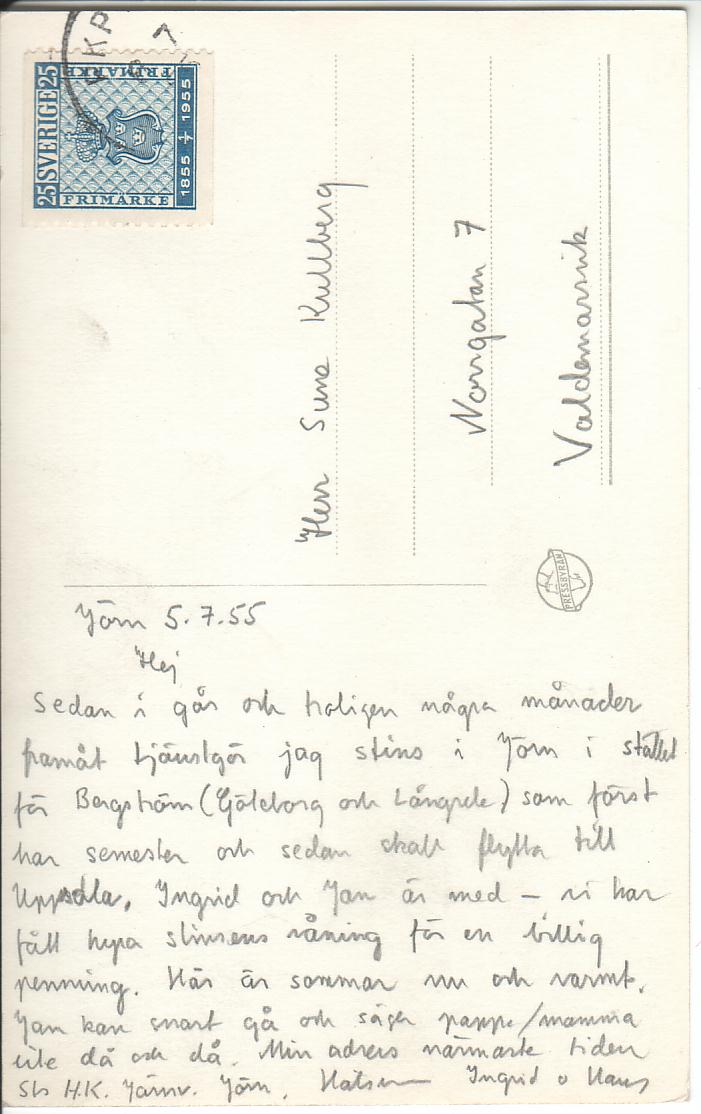 KKP
7
25 SVERIGE 25
FRIMÄRKE
FRIMÄRKE
1855 1/7 1955
Herr Sune Kullberg
Norrgatan 7
Valdemarsvik
PRESSBYRÅN
Jörn 5.7.55
Hej
Sedan i går och troligen några månader
framåt tjänstgör jag stins i Jörn i stället
för Bergström (Göteborg och Långsele) som först
har semester och sedan skall flytta till
Uppsala. Ingrid och Jan är med – vi har
fått hyra stinsens våning för en billig
penning. Här är sommar nu och varmt.
Jan kan snart gå och säger pappa/mamma
lite då och då. Min adress närmaste tiden
Sts H.K. Järnv. Jörn. Hälsn Ingrid o Hans